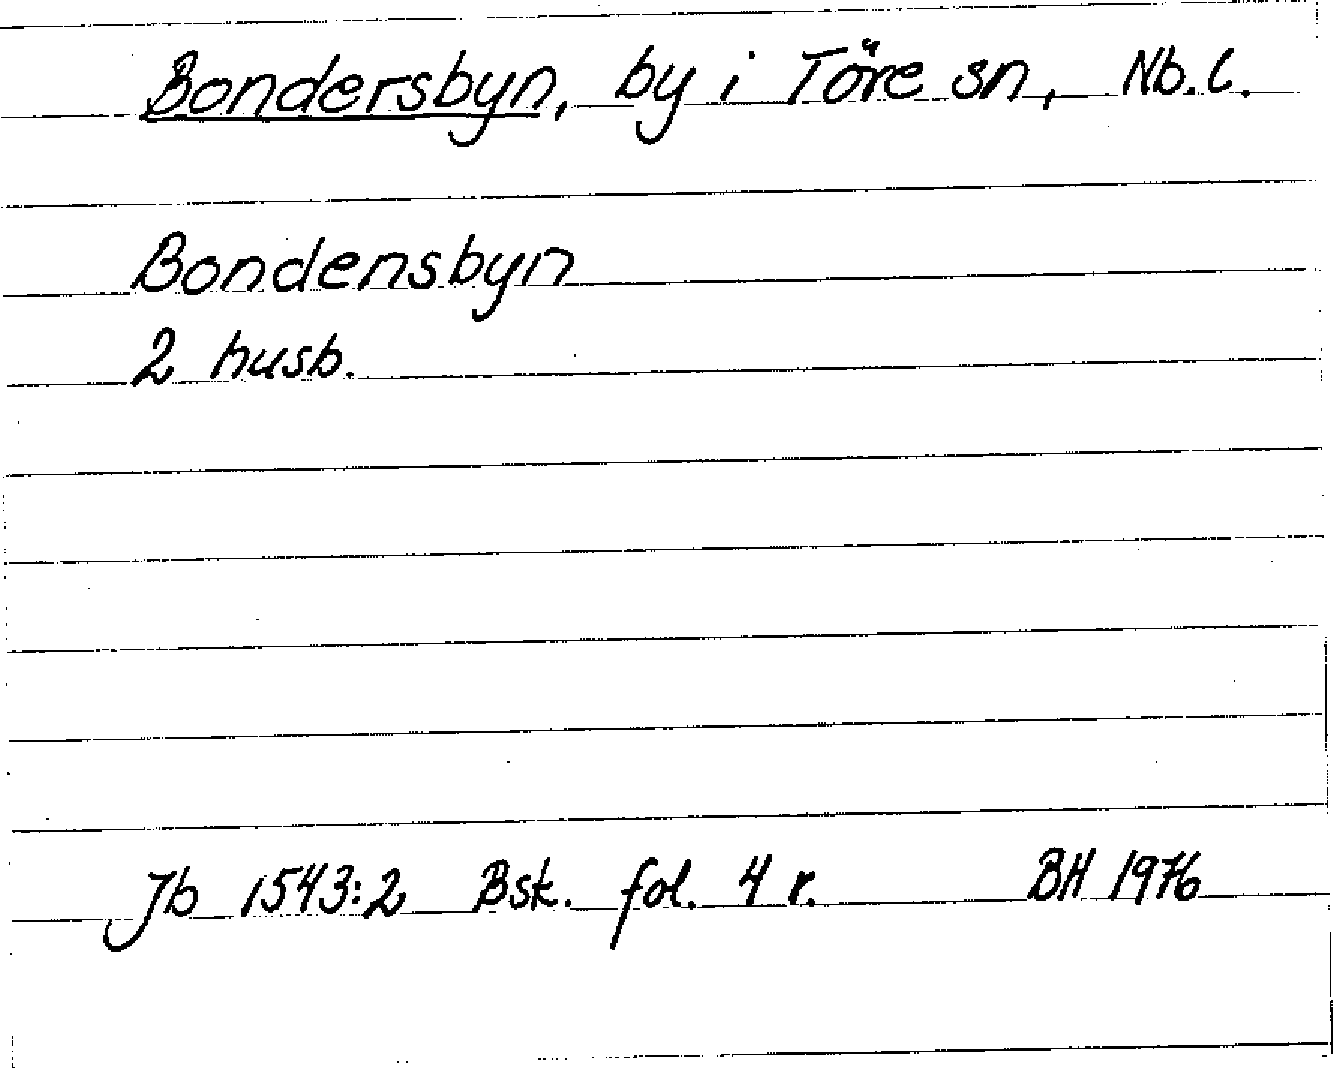 Bondersbyn, by i Töre sn, Nb.l.
Bondensbyn
2 husb.
Jb 1543:2 Bsk. fol. 4 r. BH 1976